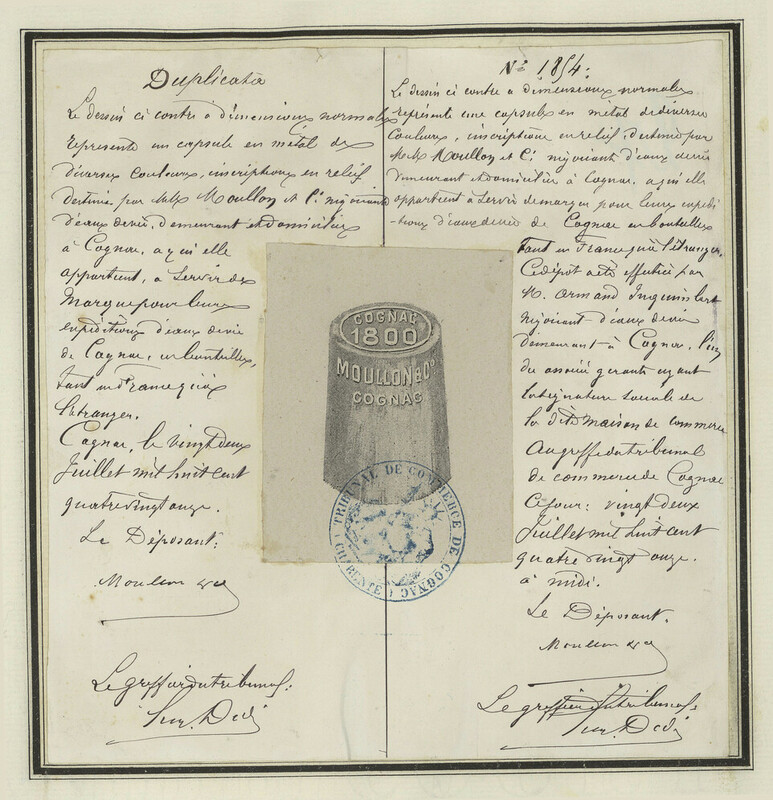 Duplicata
Le dessin ci contre à dimensions normales
représente un capsule en métal de
diverses couleurs, inscriptions en relief
destiné par MM Moullon et Cie négociants
d'eaux de vie, demeurant et domiciliés
à Cognac, à qui elle
appartient, à servir de
marque pour leurs
expéditions d'eaux de vie
de Cognac, en bouteilles,
tant en France qu'à
l'étranger.
Cognac, le vingt deux
Juillet mil huit cent
quatre vingt onze.
Le Déposant:
Moullon & Cie
Le greffier du tribunal:
No 1854:
Le dessin ci contre à dimensions normales
représente une capsule en métal de diverses
couleurs, inscriptions en relief, destiné par
MM Moullon et Cie négociants d'eaux de vie
demeurant et domiciliés à Cognac, à qui elle
appartient à servir de marque pour leurs expédi
-tions d'eaux de vie de Cognac en bouteilles
tant en France qu'à l'étranger.
Ce dépôt a été effectué par
M. Armand
négociant d'eaux de vie
demeurant à Cognac, l'un
des associé gérants ayant
la signature sociale de
la dite maison de commerce
au greffe du tribunal
de commerce de Cognac
ce jour: vingt deux
Juillet mil huit cent
quatre vingt onze.
à midi.
Le Déposant.
Moullon & Cie
Le greffier du tribunal:
COGNAC
1800
MOULLON & Co
COGNAC
TRIBUNAL DE COMMERCE DE COGNAC
(CHARENTE)